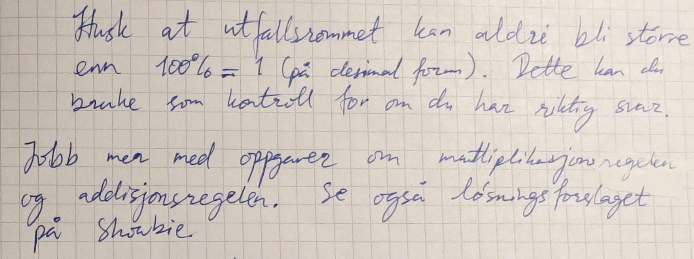 Husk at utfallsrommet kan aldri bli större
enn 100% = 1 (på desimal form). Dette kan du
bruke som kontroll for om du har riktig svar.
Jobb mer med oppgaver om multiplikasjonsregelen
og addisjonsregelen. Se også løsningsforslaget
på Showbie